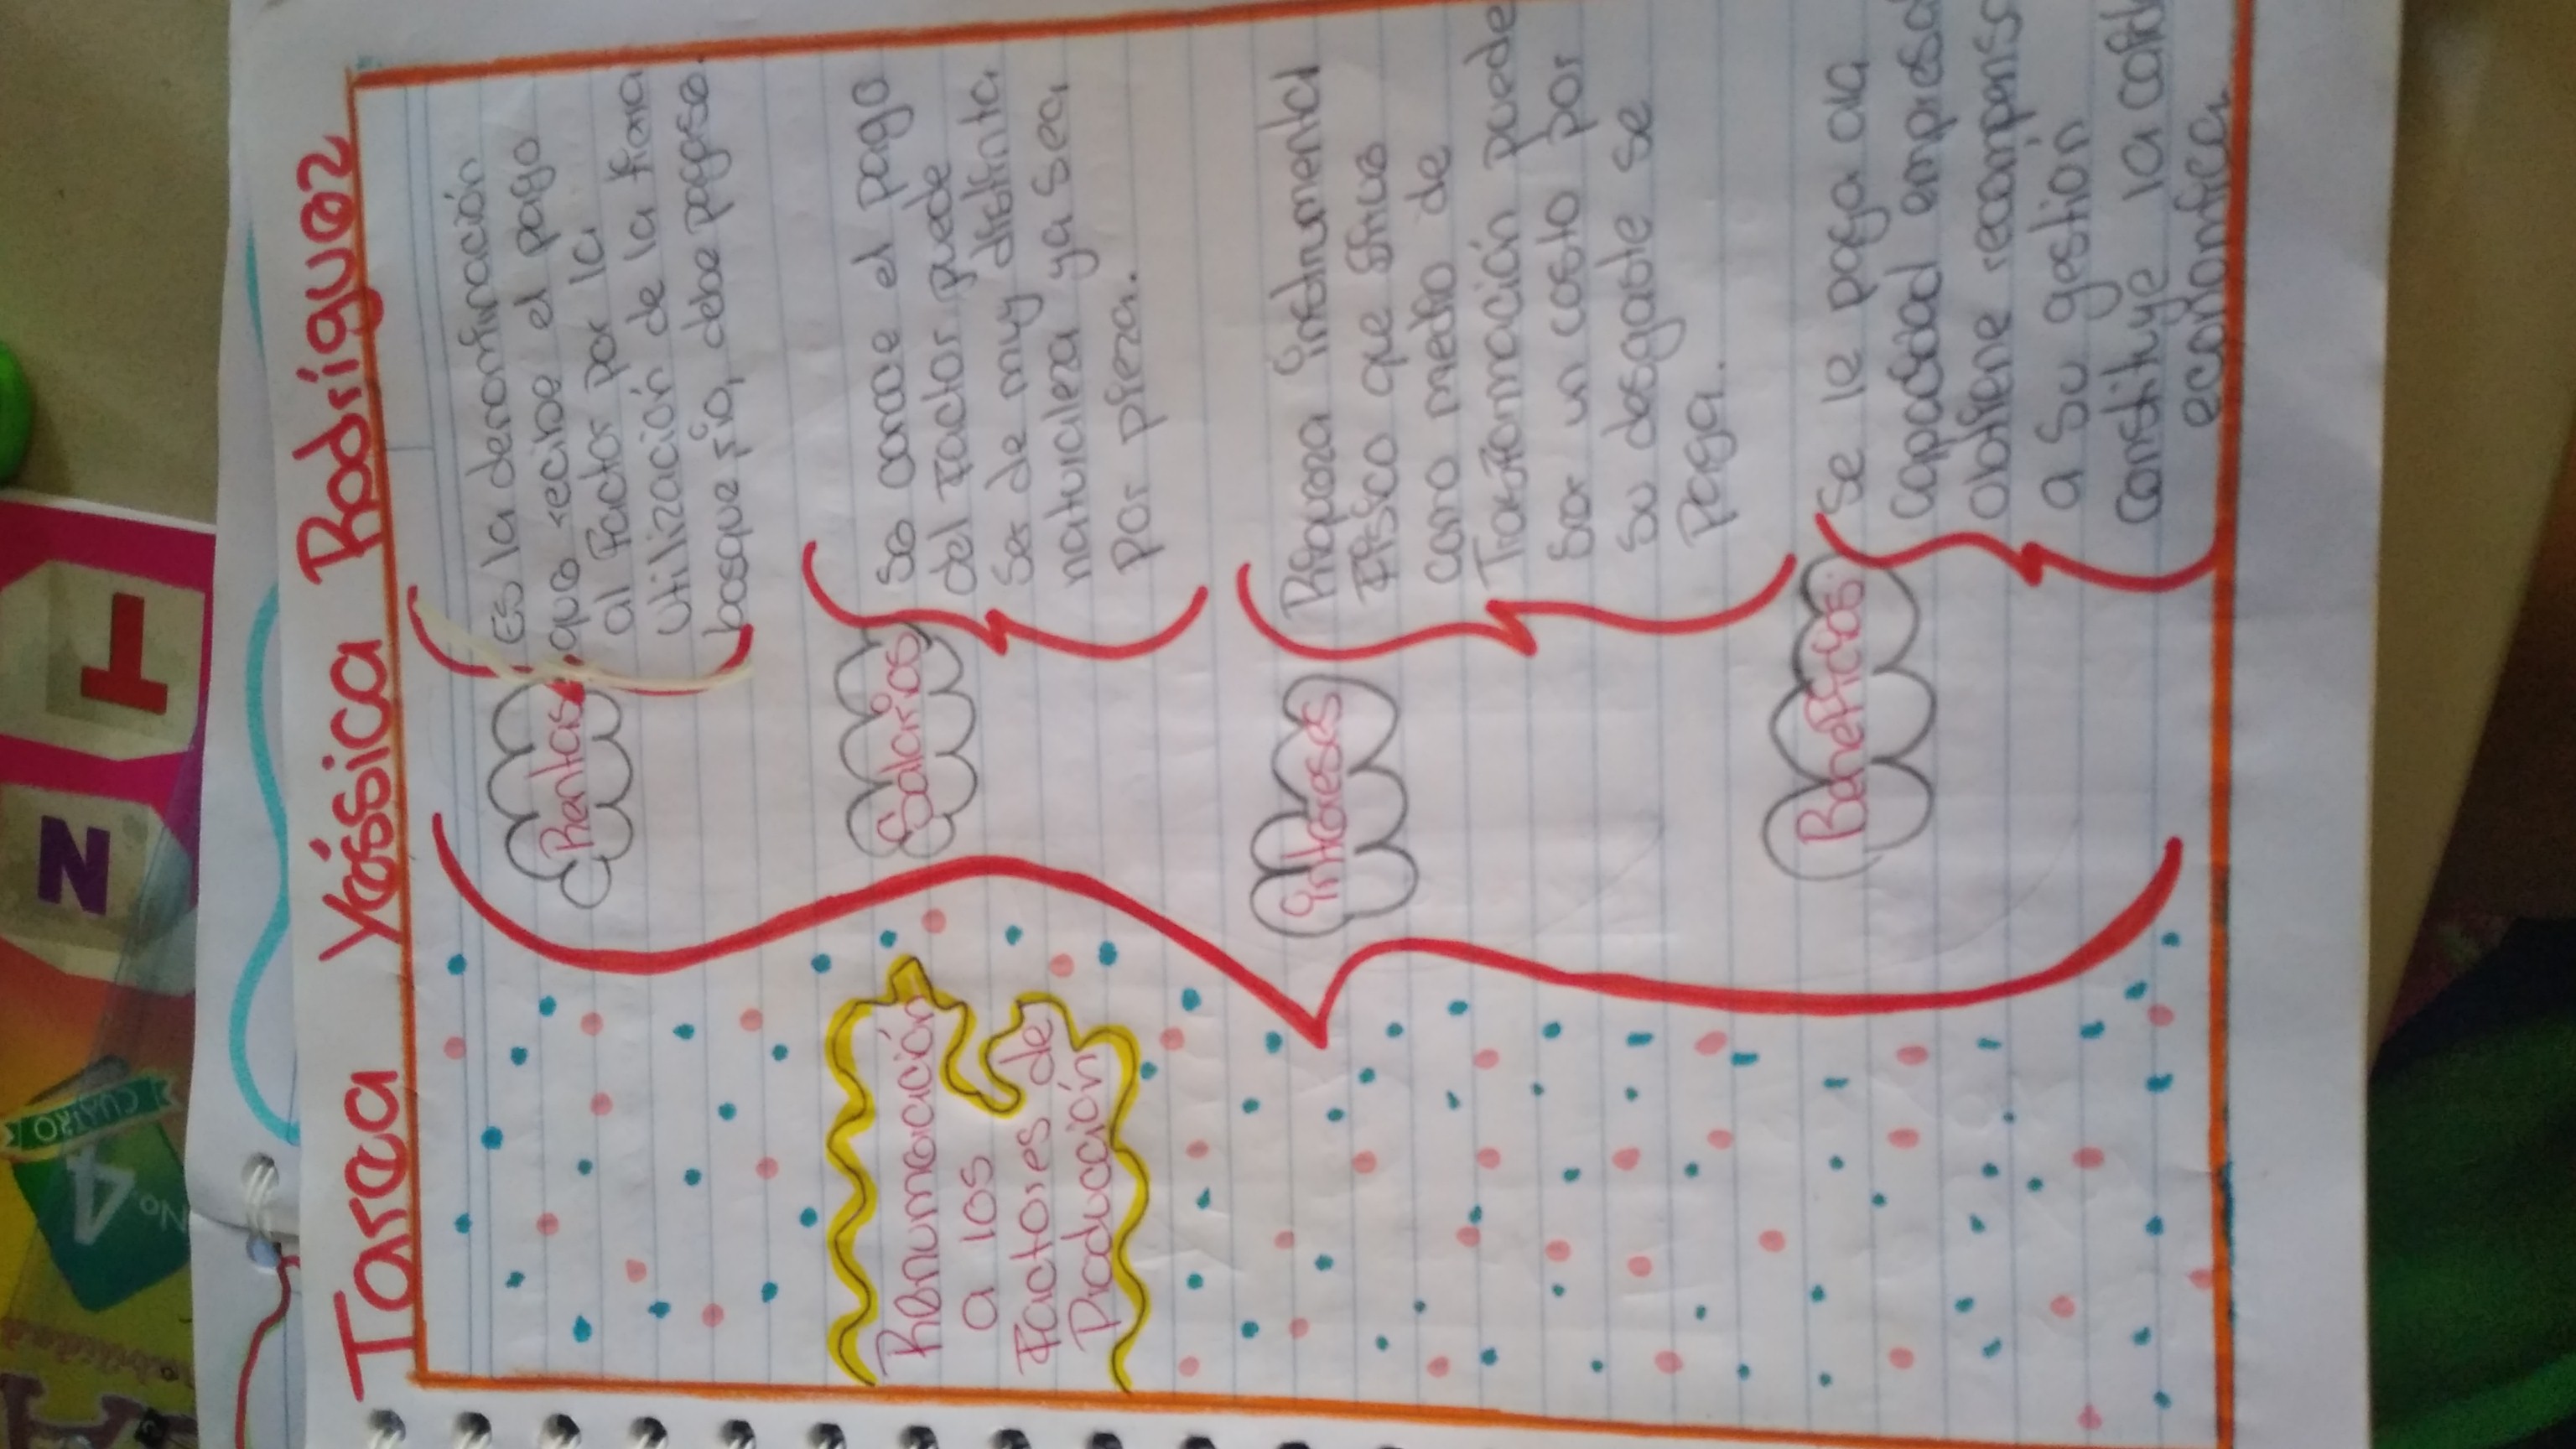 Tarea Yéssica Rodríguez
Renumeración
a los
Factores de
Producción
Rentas
Es la denominación
que recibe el pago
al Factor por la
Utilización de la
bosque río, debe pagarse.
Salarios
Se conoce el pago
del Factor puede
Ser de muy distinta
naturaleza ya sea
por pieza.
intereses
Riqueza instrumental
Físico que sirve
como medio de
Trasformación puede
Ser un costo por
Su desgaste se
Paga.
Beneficios
Se le paga ala
Capacidad
Obtiene
a Su gestion
constituye la
económica
N
T
No. 4
CUATRO